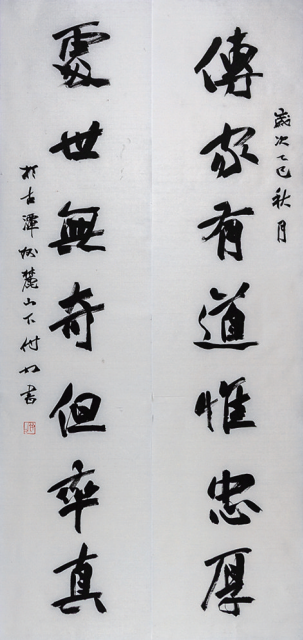 歲次乙巳秋月
傳家有道惟忠厚
處世無奇但率真
於古潭州麓山下付書